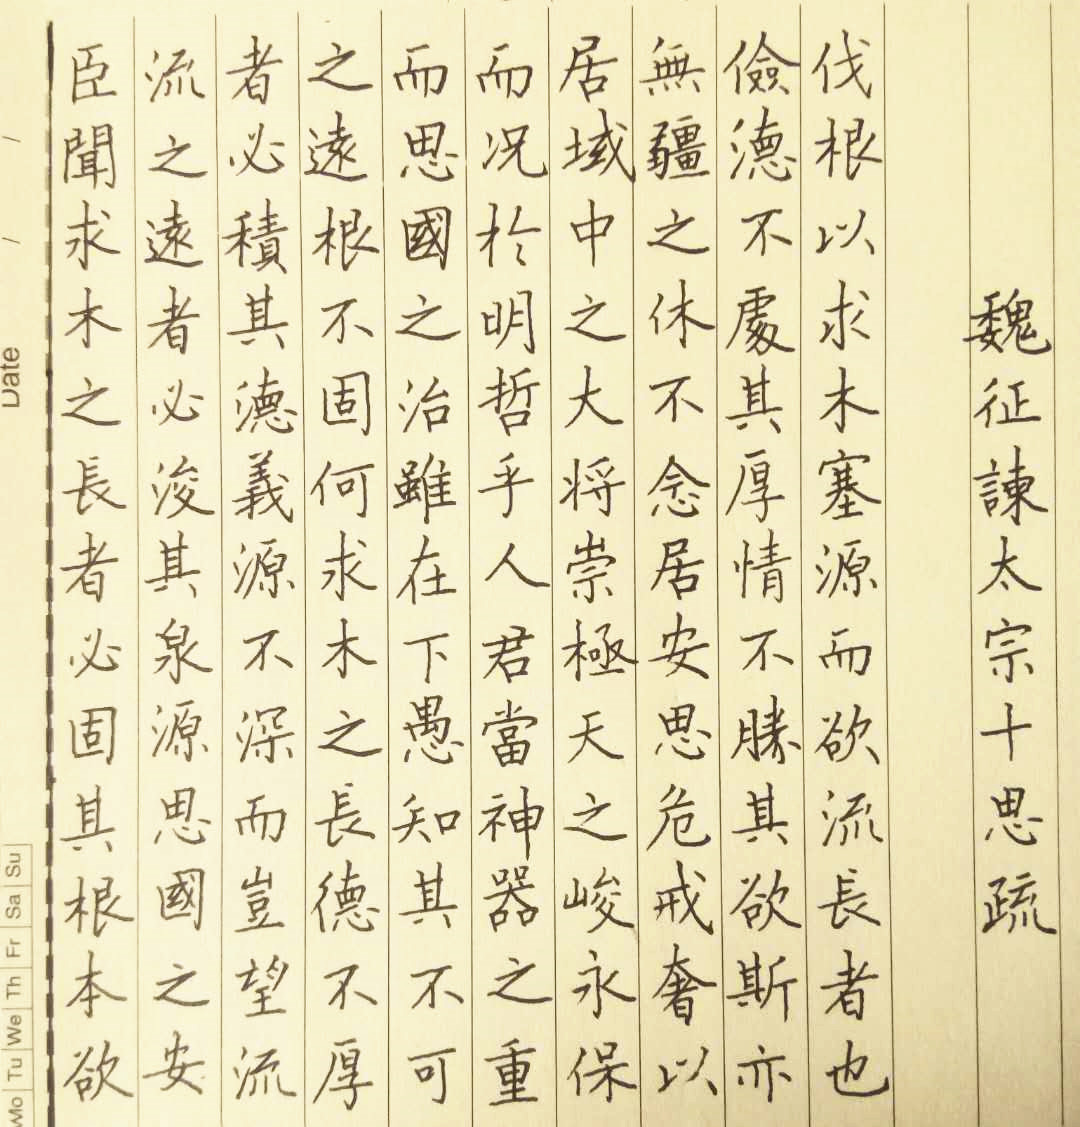 魏征諫太宗十思疏
臣聞求木之長者必固其根本欲
流之遠者必浚其泉源思國之安
者必積其德義源不深而豈望流
之遠根不固何求木之長德不厚
而思國之治雖在下愚知其不可
而况於明哲乎人君當神器之重
居域中之大将崇極天之峻永保
無疆之休不念居安思危戒奢以
儉德不處其厚情不勝其欲斯亦
伐根以求木塞源而欲流長者也
Date / /
Mo Tu We Th Fr Sa Su